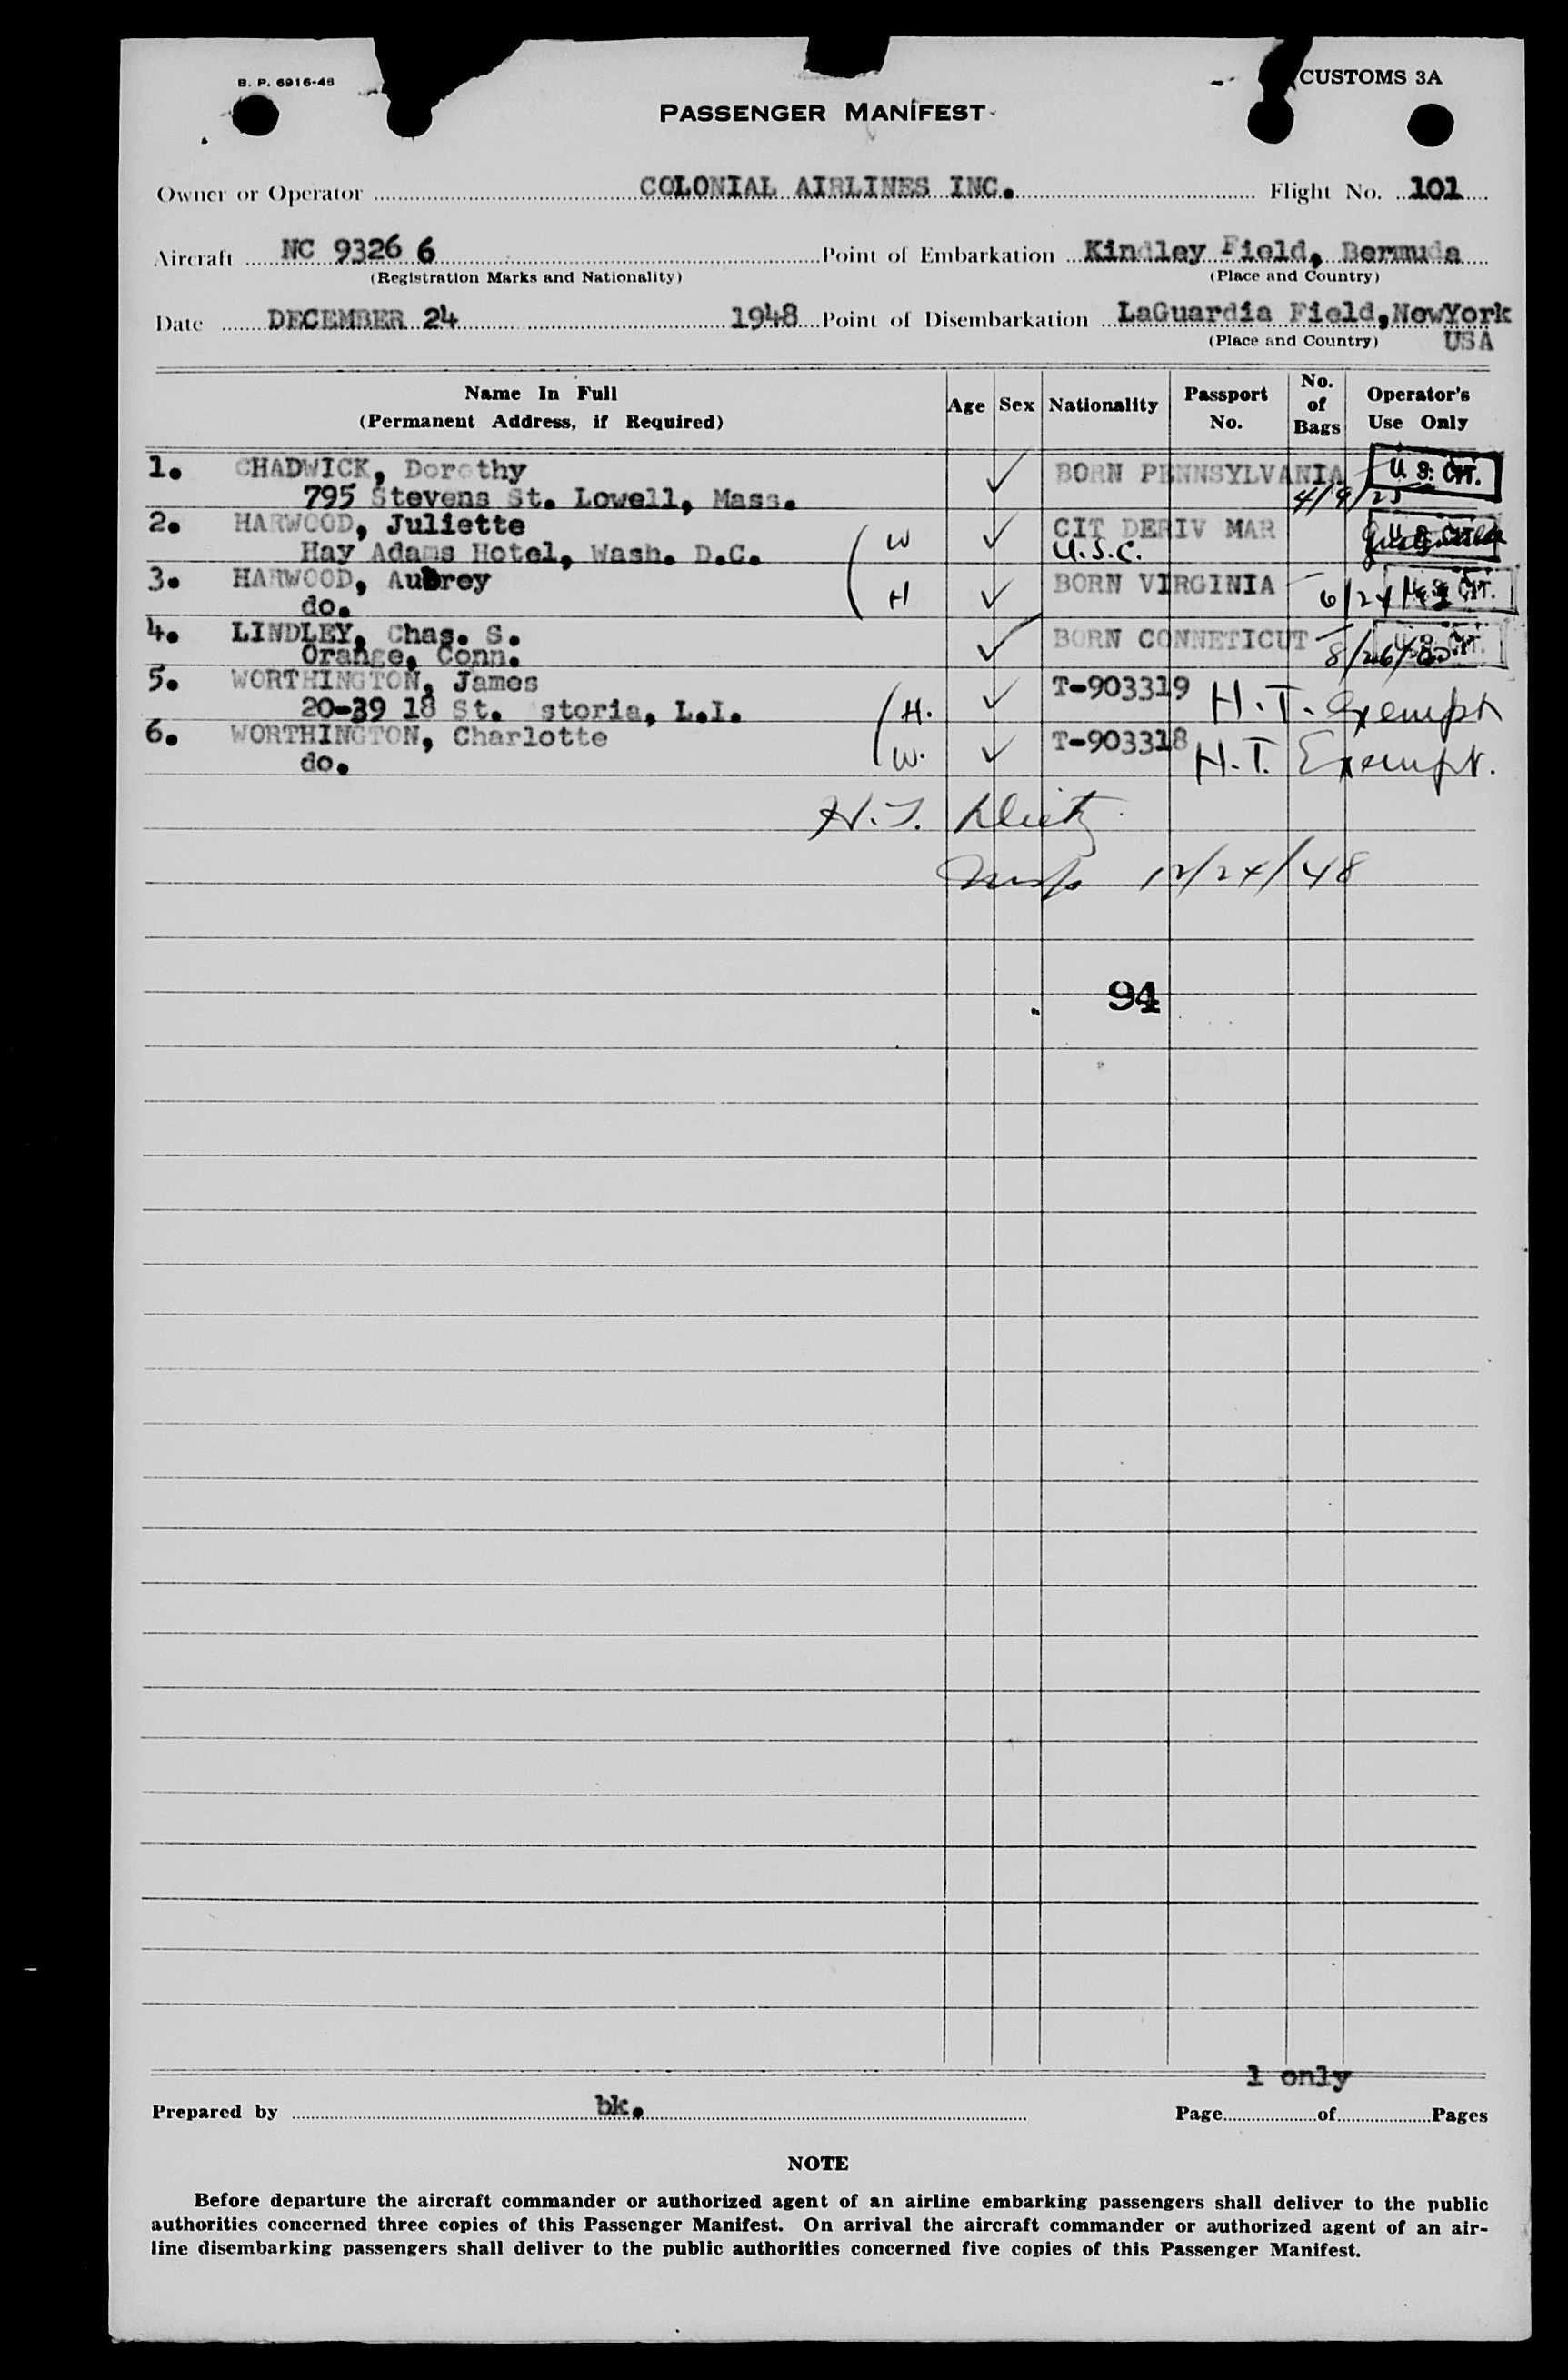 B. P. 6916-48
CUSTOMS 3A
PASSENGER MANIFEST
Owner or Operator COLONIAL AIRLINES INC. Flight No. 101
Aircraft NC 9326 6 Point of Embarkation Kindley Field, Bermuda
(Registration Marks and Nationality) (Place and Country)
Date DECEMBER 24 1948 Point of Disembarkation LaGuardia Field,NewYork
(Place and Country) USA
Name In Full
(Permanent Address, if Required)
Age Sex Nationality
Passport
No.
No.
of
Bags
Operator's
Use Only
1. CHADWICK, Dorothy ✓ BORN PENNSYLVANIA U. S. CIT.
795 Stevens St. Lowell, Mass. 4/9/25
2. HARWOOD, Juliette W ✓ CIT DERIV MAR U. S. CIT.
Hay Adams Hotel, Wash. D.C. U.S.C.
3. HARWOOD, Aubrey H ✓ BORN VIRGINIA 6/24/ U. S. CIT.
do.
4. LINDLEY, Chas. S. ✓ BORN CONNETICUT U. S. CIT.
Orange, Conn. 8/26/
5. WORTHINGTON, James H. ✓ T-903319 H.T. exempt
20-39 18 St. storia, L.I.
6. WORTHINGTON, Charlotte W. ✓ T-903318 H.T. Exempt.
do.
H.J. Dietz
Insp 12/24/48
94
1 only
Prepared by bk. Page of Pages
NOTE
Before departure the aircraft commander or authorized agent of an airline embarking passengers shall deliver to the public
authorities concerned three copies of this Passenger Manifest. On arrival the aircraft commander or authorized agent of an air-
line disembarking passengers shall deliver to the public authorities concerned five copies of this Passenger Manifest.